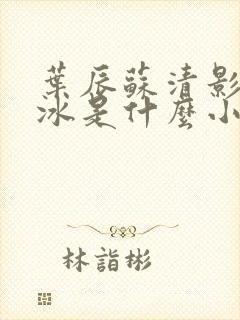 葉辰蘇清影
冰是什麼小
林詣彬